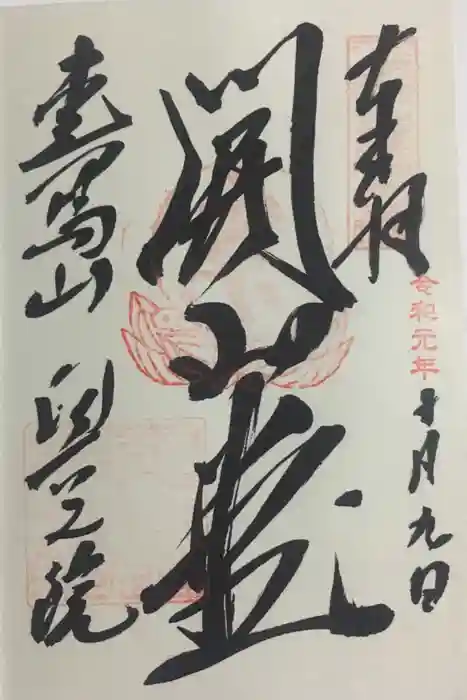 奉拝
令和元年十月九日
開山堂
書寫山 奥之院